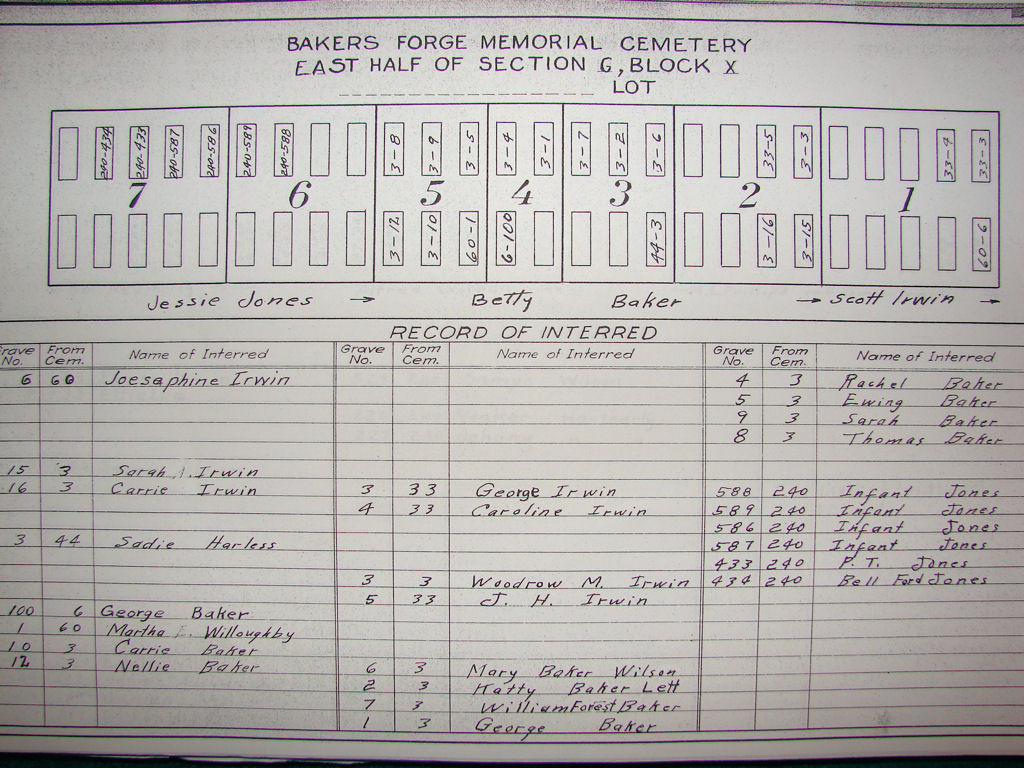 BAKERS FORGE MEMORIAL CEMETERY
EAST HALF OF SECTION G, BLOCK X
LOT
240-434 240-433 240-587 240-586 240-589 240-588 3-8 3-9 3-5 3-4 3-1 3-7 3-2 3-6 33-5 3-3 33-4 33-3
7 6 5 4 3 2 1
3-12 3-10 60-1 6-100 44-3 3-16 3-15 60-6
Jessie Jones → Betty Baker → Scott Irwin →
RECORD OF INTERRED
Grave No. From Cem. Name of Interred Grave No. From Cem. Name of Interred Grave No. From Cem. Name of Interred
6 60 Joesaphine Irwin 4 3 Rachel Baker
5 3 Ewing Baker
9 3 Sarah Baker
8 3 Thomas Baker
15 3 Sarah A. Irwin
16 3 Carrie Irwin 3 33 George Irwin 588 240 Infant Jones
4 33 Caroline Irwin 589 240 Infant Jones
586 240 Infant Jones
3 44 Sadie Harless 587 240 Infant Jones
433 240 P. T. Jones
3 3 Woodrow M. Irwin 434 240 Bell Ford Jones
5 33 J. H. Irwin
100 6 George Baker
1 60 Martha E. Willoughby
10 3 Carrie Baker
12 3 Nellie Baker 6 3 Mary Baker Wilson
2 3 Katty Baker Lett
7 3 William Forest Baker
1 3 George Baker